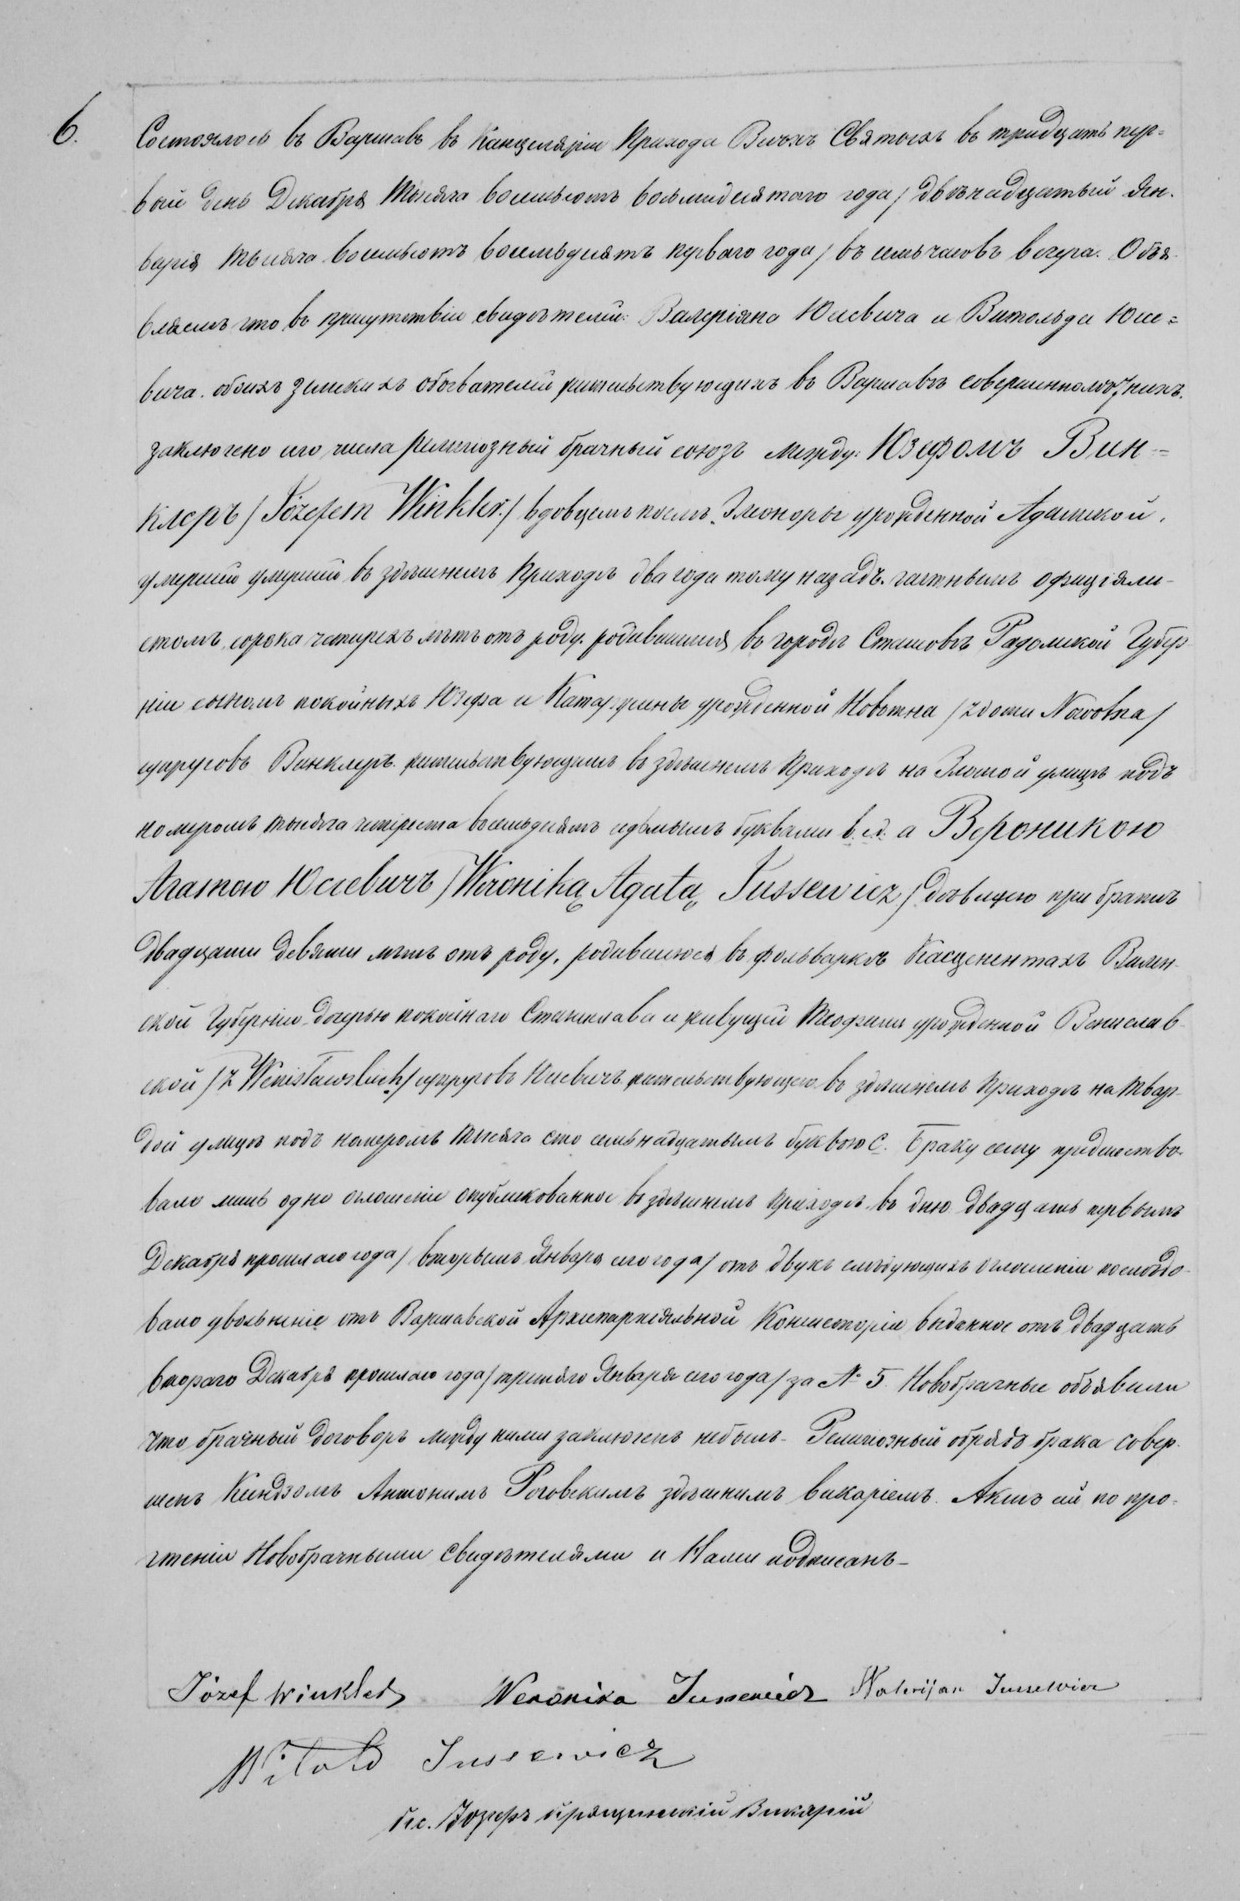 6.
Состоялось въ Варшавѣ въ Канцеляріи Прихода Всѣхъ Святыхъ въ тридцать пер=
вый день Декабря тысяча восемьсотъ восьмидесятаго года / двѣнадцатый Ян-
варя тысяча восемьсотъ восемьдесятъ перваго года / въ семь часовъ вечера. Объя-
вляемъ что въ присутствіи свидѣтелей: Валеріяна Юсевича и Витольда Юсе=
вича. обоихъ земскихъ обывателей жительствующихъ въ Варшавѣ совершеннолѣтнихъ.
заключено сего числа религіозный брачный союзъ между: Юзефомъ Вин=
клеръ / Józefem Winkler / вдовцемъ послѣ Элеоноры урожденной Адамской,
умершей въ здѣшнемъ Приходѣ два года тому назадъ. частнымъ офиціяли-
стомъ, сорока четырехъ лѣтъ отъ роду. родившимся въ городѣ Сташовѣ Радомской Губер-
ніи сыномъ покойныхъ Юзефа и Катаржины урожденной Новотна / z domu Nowotna /
супруговъ Винклеръ. жительствующимъ въ здѣшнемъ Приходѣ на Злотой улицѣ подъ
номеромъ тысяча четыреста восемьдесятъ седьмымъ буквами в. а Вероникою
Агатою Юсевичъ / Weroniką Agatą Jussewicz / дѣвицею при братѣ
двадцати девяти лѣтъ отъ роду, родившеюся въ фольваркѣ Вилен-
ской Губерніи дочерью покойнаго Станислава и живущей Теофили урожденной Вениславс-
ской / z Wenisławskich / супруговъ Юсевичъ жительствующею въ здѣшнемъ Приходѣ на твар-
дой улицѣ подъ номеромъ тысяча сто семьнадцатымъ буквою С. Браку сему предшество-
вало лишь одно оглашеніе опубликованное въ здѣшнемъ Приходѣ въ дню двадцать первымъ
Декабря прошлаго года / вторымъ Января сего года / отъ двухъ слѣдующихъ оглашеній послѣдо-
вало увольненіе отъ Варшавской Архіепархіяльной Консисторіи выданное отъ двадцать
втораго Декабря прошлаго года / третьяго Января сего года / за № 5. Новобрачные объявили
что брачный договоръ между ними заключенъ небылъ. Религіозный обрядъ брака совер-
шенъ Ксендзомъ Антонимъ Роговскимъ здѣшнимъ викаріемъ. Актъ сей по про-
чтеніи Новобрачными Свидѣтелями и Нами подписанъ.
Józef Winkler Weronika Jussewicz Waleryjan Jussewicz
Witold Jussewicz
Кс. Іозефъ Викарій